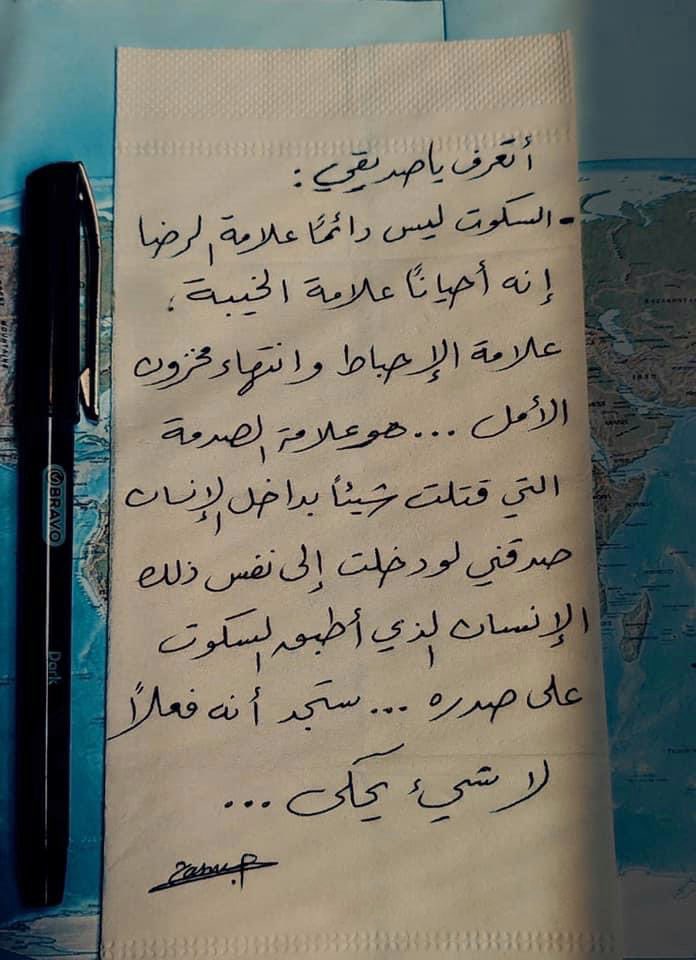 أتعرف ياصديقي :
- السكوت ليس دائمًا علامة الرضا
إنه أحيانًا علامة الخيبة،
علامة الإحباط وانتهاء مخزون
الأمل ... هو علامة الصدمة
التي قتلت شيئاً بداخل الإنسان
صدقني لو دخلت إلى نفس ذلك
الإنسان الذي أطبق السكوت
على صدره ... ستجد أنه فعلاً
لا شيء يحكى ...
BRAVO
Dark